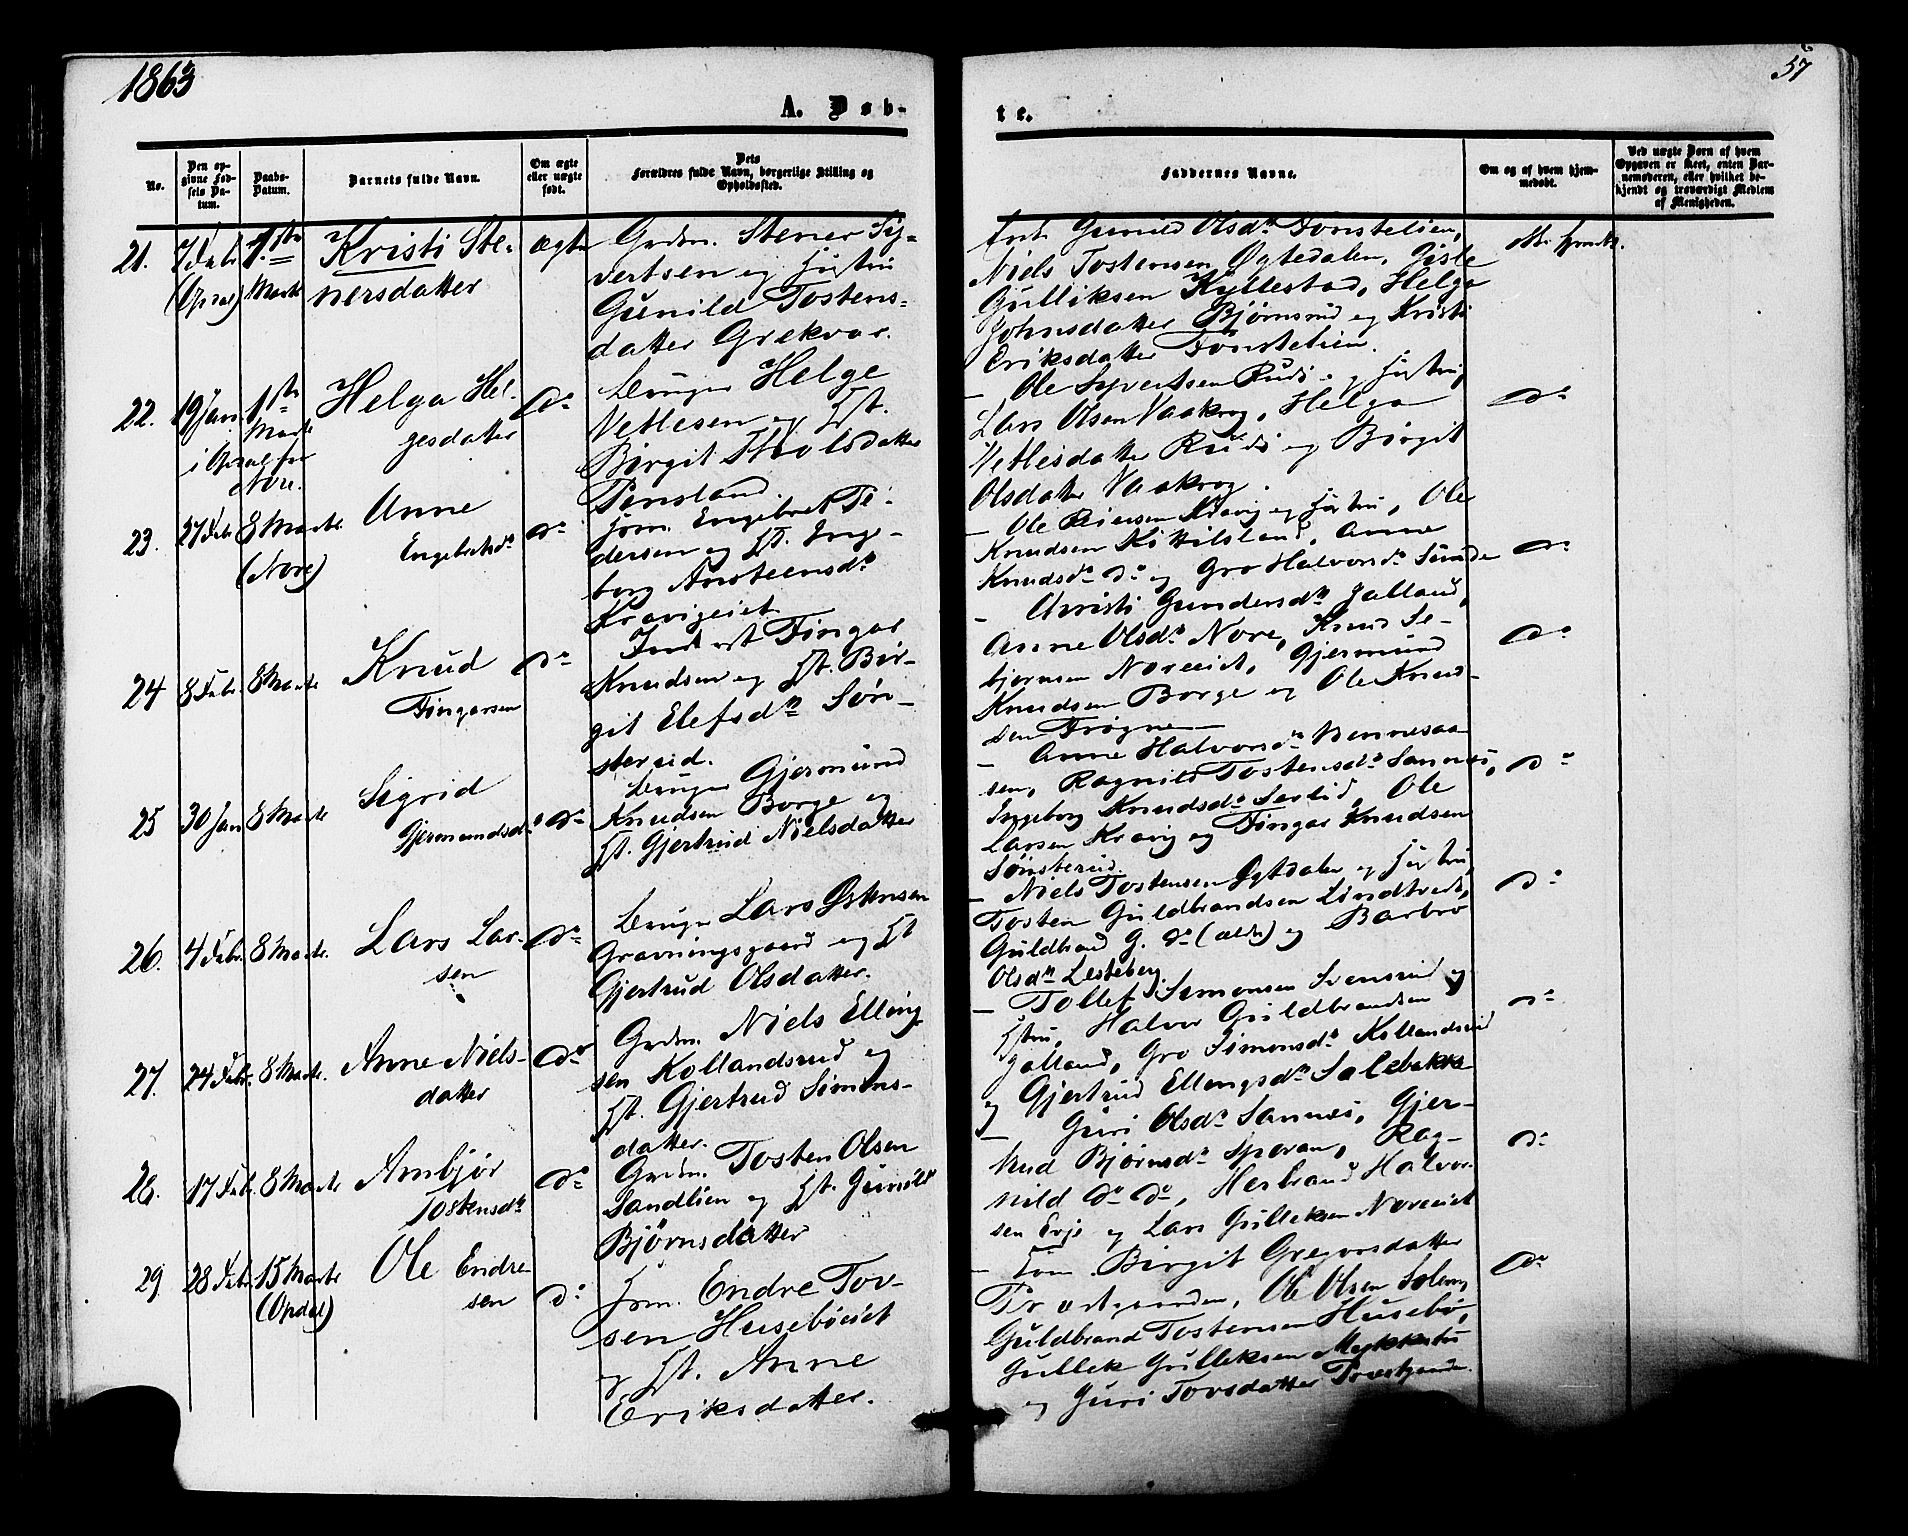 1863
57
A. Døb-
te.
No.
Den op-
givne Fød-
sels Da-
tum.
Daabs-
Datum.
Barnets fulde Navn.
Om ægte
eller uægte
født.
Dets
Forældres fulde Navn, borgerlige Stilling og
Opholdssted.
Faddernes Navne.
Om og af hvem hjem-
medøbt.
Ved uægte Børn af hvem
Opgaven er skeet, enten Bar-
nemoderen, eller hvilket be-
kjendt og troværdigt Medlem
af Menigheden.
21.
7 Febr
(Opdal)
1ste
Marts
Kristi Ste-
nersdatter
ægte
Grdm. Stener Sy-
vertsen og Hustru
Gunild Tostens-
datter Grekvar.
Gunild Olsdr Tonstelien,
Niels Tostensen Øgtedalen, Gisle
Gulliksen Kyllestad, Helga
Johnsdatter Bjørnsrud og Kristi
Eriksdatter Tonstelien.
22.
19 Jan.
i Opdal for
Nore.
1ste
Marts
Helga Hel-
gesdatter
do
Helge
Vetlesen og Hst.
Birgit
- Ole Syvertsen Ruds og Hustru,
Lars Olsen Vaakrog, Helga
Vetlesdatter Ruds og Birgit
Olsdatter Vaakrog.
do
23.
27 Febr
8 Marts
(Nore)
Anne
Engebretsdr
do
Engebret Ti-
dersen og Hst. Inge-
borg Ansteensdr
Kravigeiet
- Ole Kravig og Hustru, Ole
Knudsen Kittilsland, Anne
Knudsdr do og Gro Halvorsdr
do
24
8 Febr.
8 Marts
Knud
Fingarsen
do
Inderst Fingar
Knudsen og Hst. Bir-
git Elefsdr Søn-
sterud.
- Christi Gundersdr Jalland,
Anne Olsdr Nore, Knud Se-
bjørnsen Noreeiet, Gjermund
Knudsen Borge og Ole Knud-
sen Frøgne
do
25
30 Jan
8 Marts
Sigrid
Gjermundsdr
do
Gjermund
Knudsen Borge og
Hst. Gjertrud Nielsdatter
- Anne Halvorsdr
sen, Ragnild Tostensdr Sannæs,
Ingeborg Knudsdr Ole
Larsen Kravig og Fingar Knudsen
Sønsterud.
do
26.
4 Febr.
8 Marts.
Lars Lar-
sen
do
Lars Østensen
Gravningsgaard og Hst
Gjertrud Olsdatter.
- Niels Tostensen Øgtdalen og Hustru,
Tosten Guldbrandsen
Guldbrand G. do (ældre) og Barbro
Olsdr Lesteberg.
do
27.
24 Febr.
8 Marts.
Anne Niels-
datter
do
Grdm. Niels Elling-
sen Kollandsrud og
Hst. Gjertrud Simons-
datter.
- Tollef Simonsen Svensrud og
Hstru, Halvor Guldbrandsen
Jalland, Gro Simonsdr Kollandsrud
og Gjertrud Ellingsdr Solebakke
do
28.
17 Febr.
8 Marts
Ambjør
Tostensdr
do
Grdm. Tosten Olsen
Sandlien og Hst. Gunild
Bjørnsdatter
- Guri Olsdr Sannæs, Gjer-
trud Bjørnsdr Sporan, Rag-
nild do do, Herbrand Halvor-
sen Evje og Lars Gulleksen Noreeiet
do
29
28 Febr.
15 Marts
(Opdal)
Ole Endre-
sen
do
Endre Tov-
sen Husebøeiet
og Hst. Anne
Eriksdatter.
- Birgit Gregorsdatter
Præstgaarden, Ole Olsen
Guldbrand Tostensen Husebø,
Gullek Gulleksen
og Guri Tovsdatter
do